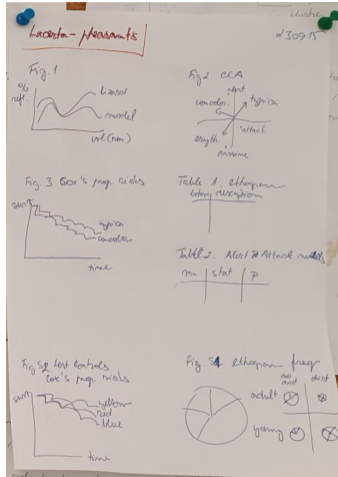 Lacerta - pheasants
230915
Fig. 1
%
refl.
lizard
model
wl (nm)
Fig 2. CCA
alert
concolor.
typica
attack
eryth.
Fig. 3 Cox's prop. risks
surv
typica
concolor
time
Table 1. ethogram
description
Table 2. Alert & Attack models
stat
p
Fig S1 test controls
Cox's prop. risks
surv
yellow
red
blue
time
Fig S1 ethogram freq
adult
young